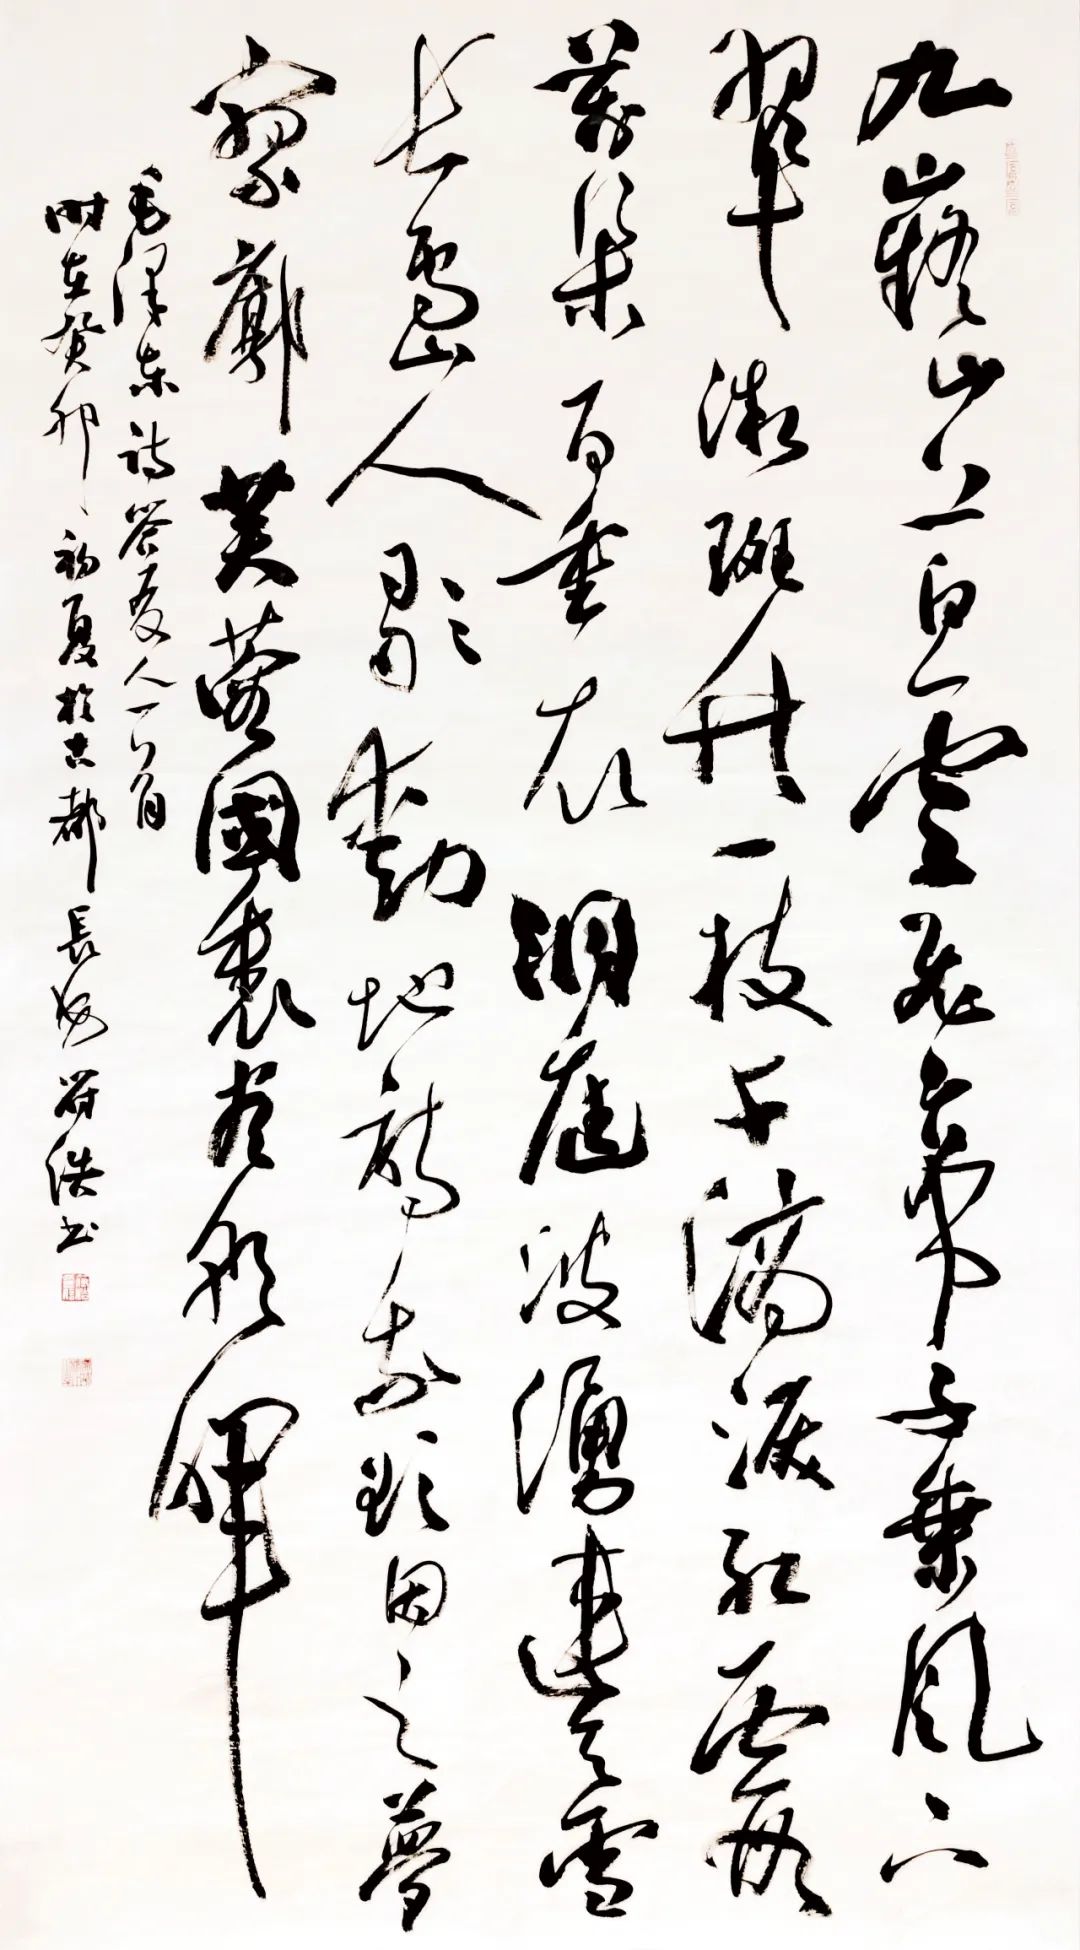 九嶷山上白雲飛帝子乘風下
翠微斑竹一枝千滴淚紅霞
萬朵百重衣洞庭波湧連天雪
長島人歌動地詩我欲因之夢
寥廓芙蓉國裏盡朝暉
毛澤東詩答友人一首
時在癸卯初夏於古都長安浩書